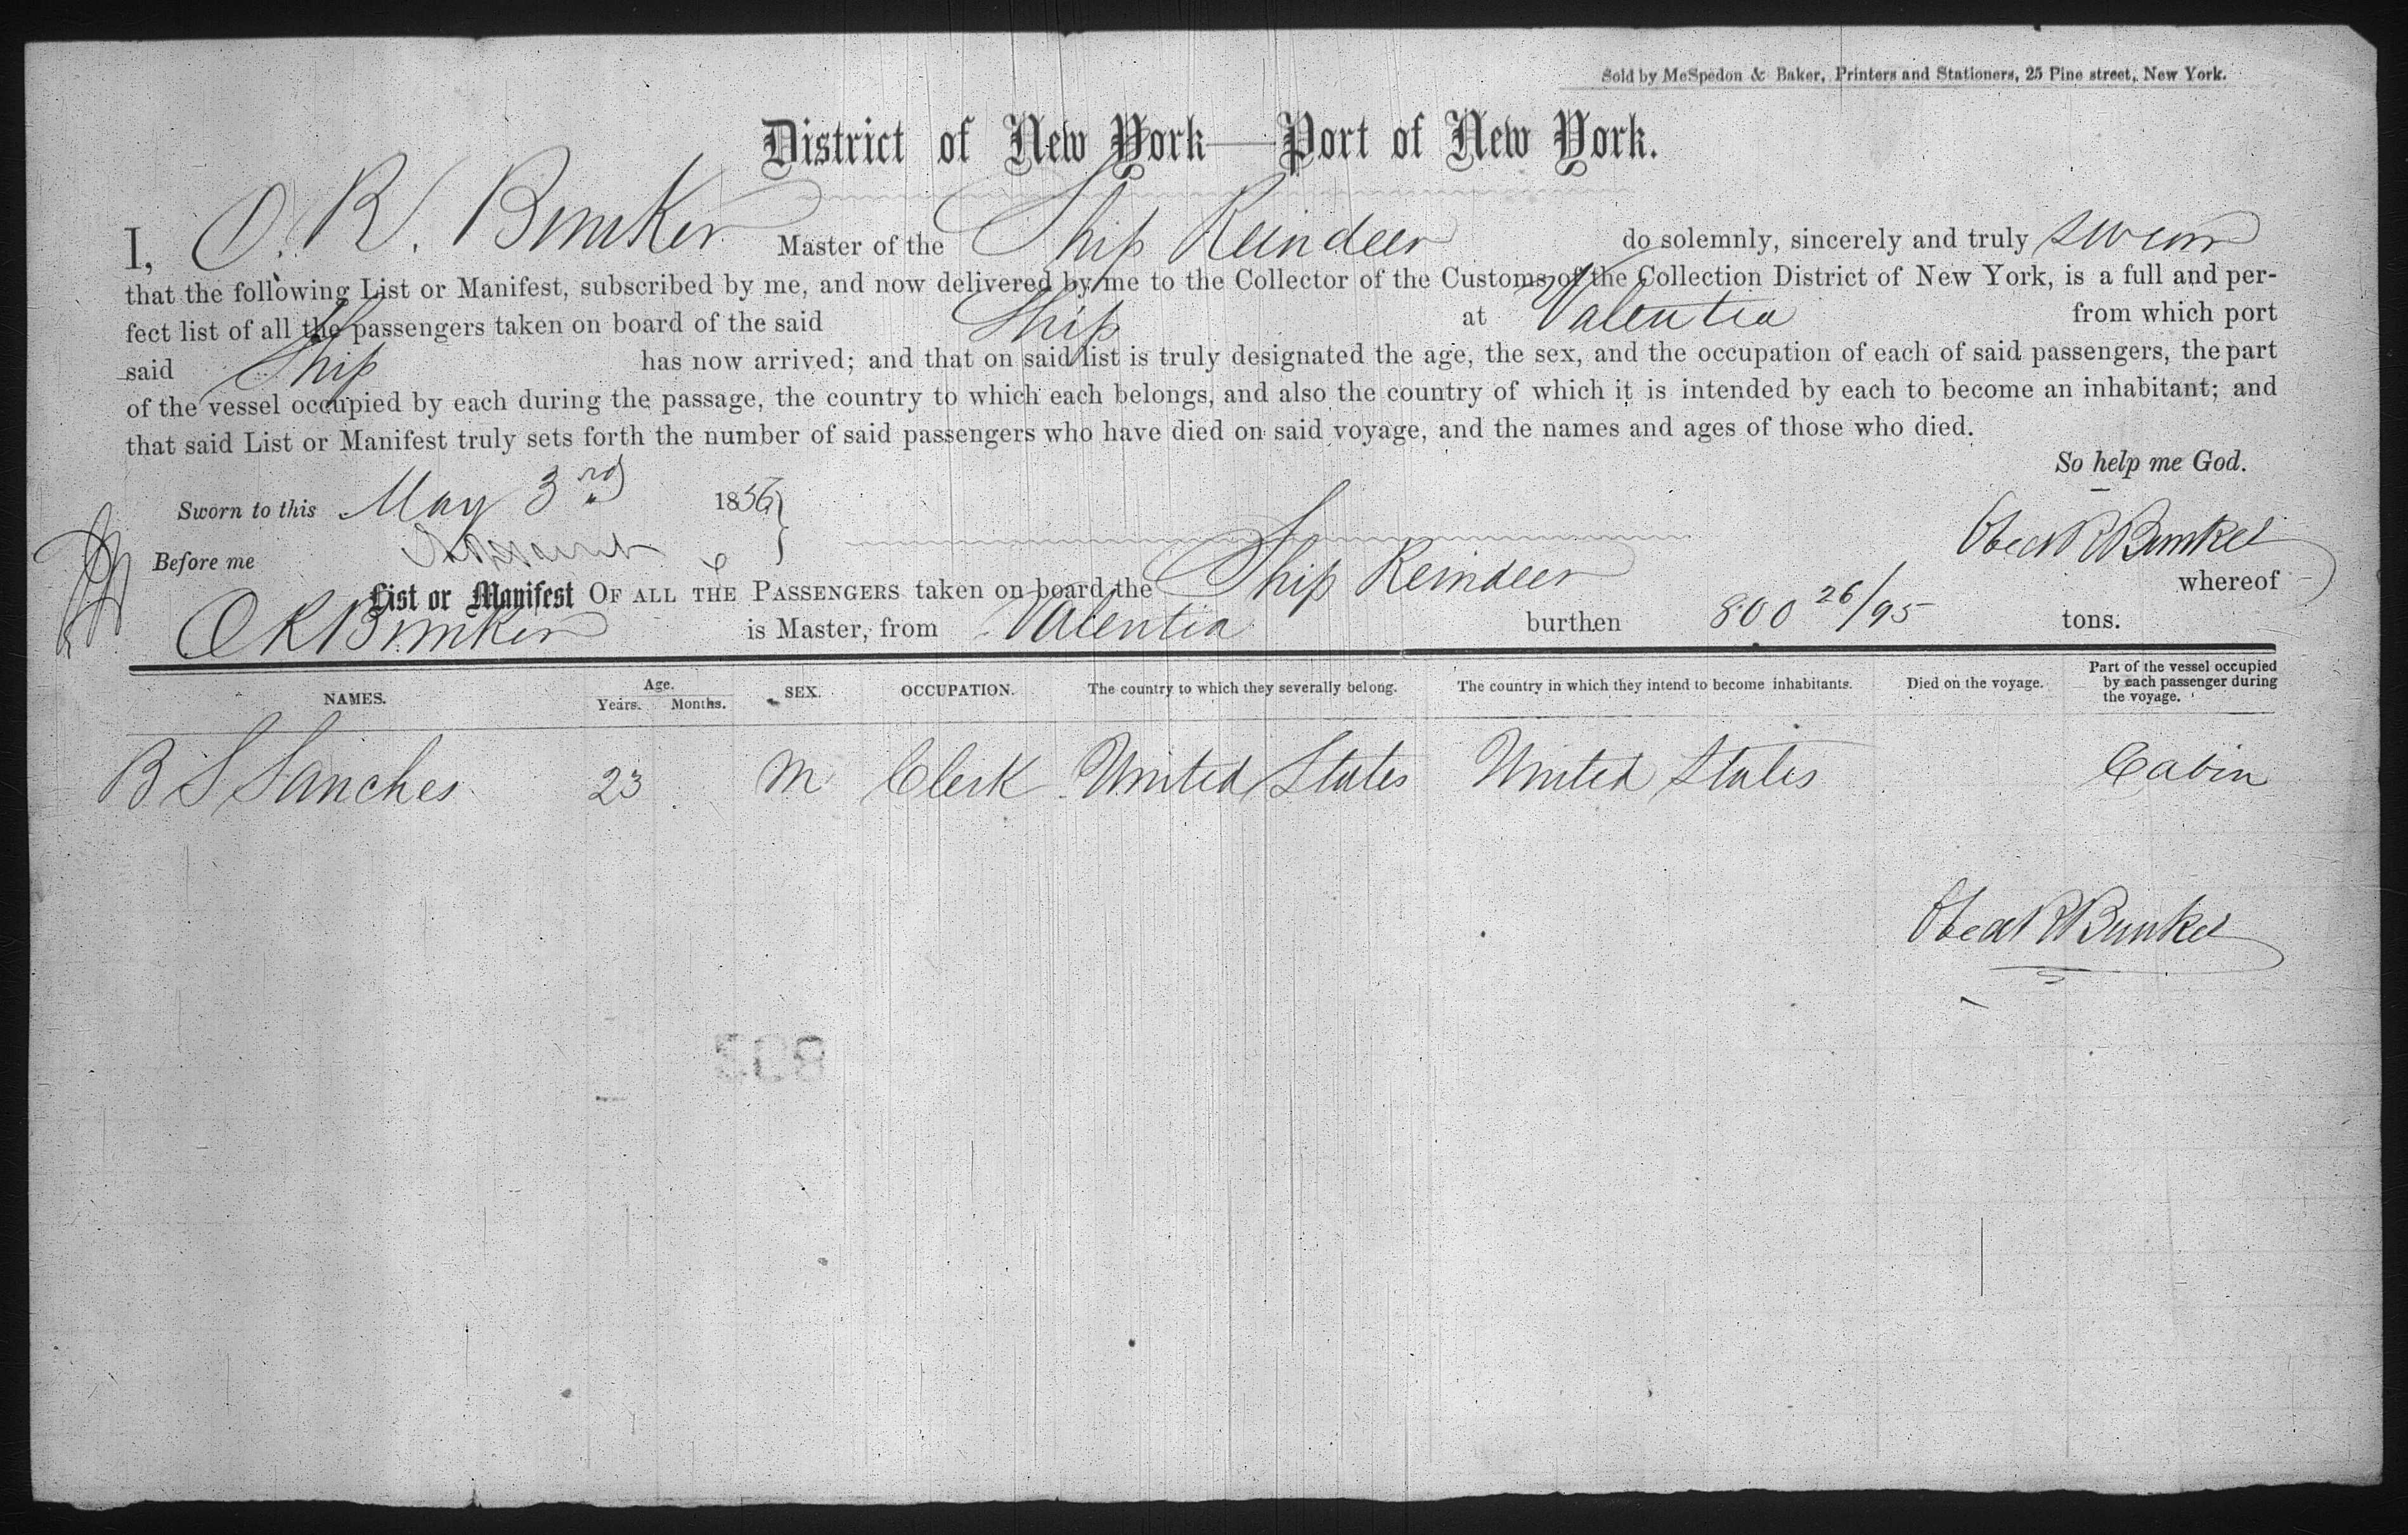 Sold by McSpedon & Baker, Printers and Stationers, 25 Pine street, New York.
District of New York—Port of New York.
I, O. R. Bunker Master of the Ship Reindeer do solemnly, sincerely and truly swear
that the following List or Manifest, subscribed by me, and now delivered by me to the Collector of the Customs of the Collection District of New York, is a full and per-
fect list of all the passengers taken on board of the said Ship at Valentia from which port
said Ship has now arrived; and that on said list is truly designated the age, the sex, and the occupation of each of said passengers, the part
of the vessel occupied by each during the passage, the country to which each belongs, and also the country of which it is intended by each to become an inhabitant; and
that said List or Manifest truly sets forth the number of said passengers who have died on said voyage, and the names and ages of those who died.
So help me God.
Sworn to this May 3rd 1856
Obed R Bunker
Before me
List or Manifest OF ALL THE PASSENGERS taken on board the Ship Reindeer whereof
O R Bunker is Master, from Valentia burthen 800 26/95 tons.
NAMES. Age. Years. Months. SEX. OCCUPATION. The country to which they severally belong. The country in which they intend to become inhabitants. Died on the voyage. Part of the vessel occupied by each passenger during the voyage.
B S Sanches 23 M Clerk United States United States Cabin
Obed R Bunker